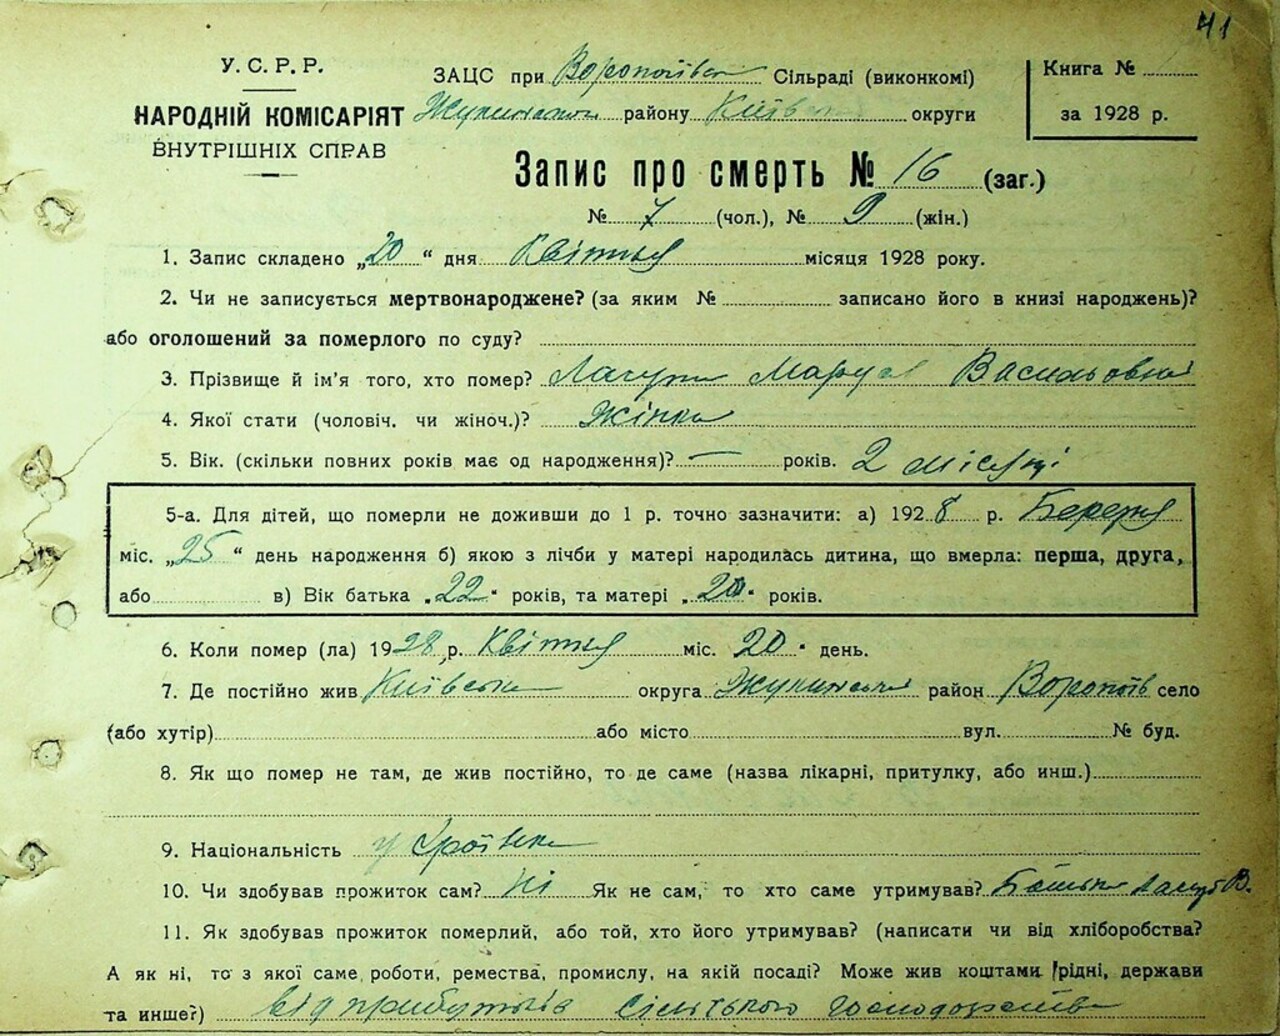 41
У. С. Р. Р.
НАРОДНІЙ КОМІСАРІЯТ
ВНУТРІШНІХ СПРАВ
ЗАЦС при Воропаївск Сільраді (виконкомі)
Жукинськом району Київськ округи
Книга №
за 1928 р.
Запис про смерть № 16 (заг.)
№ 7 (чол.), № 9 (жін.)
1. Запис складено „20“ дня Квітня місяця 1928 року.
2. Чи не записується мертвонароджене? (за яким № записано його в книзі народжень)?
або оголошений за померлого по суду?
3. Прізвище й ім'я того, хто помер? Маруся Васильовна
4. Якої стати (чоловіч. чи жіноч.)? Жінка
5. Вік. (скільки повних років має од народження)? — років. 2 місяці
5-а. Для дітей, що померли не доживши до 1 р. точно зазначити: а) 1928 р. Березня
міс. „25“ день народження б) якою з лічби у матері народилась дитина, що вмерла: перша, друга,
або в) Вік батька „22“ років, та матері „20“ років.
6. Коли помер (ла) 1928 р. Квітня міс. 20 день.
7. Де постійно жив Київська округа Жукинський район Воропаїв село
(або хутір) або місто вул. № буд.
8. Як що помер не там, де жив постійно, то де саме (назва лікарні, притулку, або инш.)
9. Національність українка
10. Чи здобував прожиток сам? Ні Як не сам, то хто саме утримував? Батько В.
11. Як здобував прожиток померлий, або той, хто його утримував? (написати чи від хліборобства?
А як ні, то з якої саме роботи, ремества, промислу, на якій посаді? Може жив коштами рідні, держави
та инше?) від прибутків сільського господарства